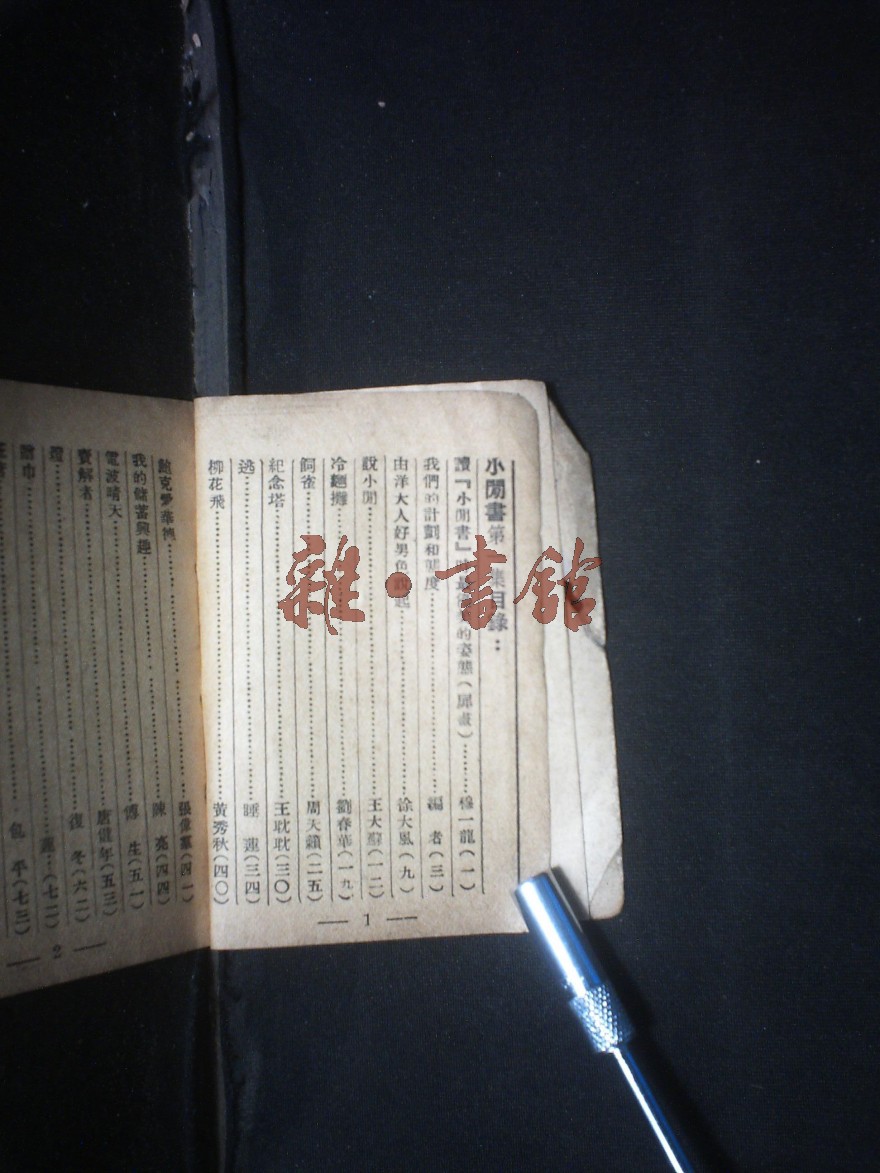 小閒書第 集目錄：
讀『小閒書』 的姿態（扉畫）………穆一龍（一）
我們的計劃和態度………編者（三）
由洋大人好男色說起………徐大風（九）
說小閒………王大蘇（一二）
冷麵攤………劉春華（一九）
飼雀………周天籟（二五）
紀念塔………王耽耽（三〇）
逃………睡蓮（三四）
柳花飛………黃秀秋（四〇）
— 1 —
鮑克夢 ………張像 （四一）
我的儲蓄興趣………陳亮（四四）
電波晴天………傅生（五一）
賣解者………唐健年（五三）
………復冬（六二）
頭巾………蓮（七二）
………包平（七三）
— 2 —
雜·書館